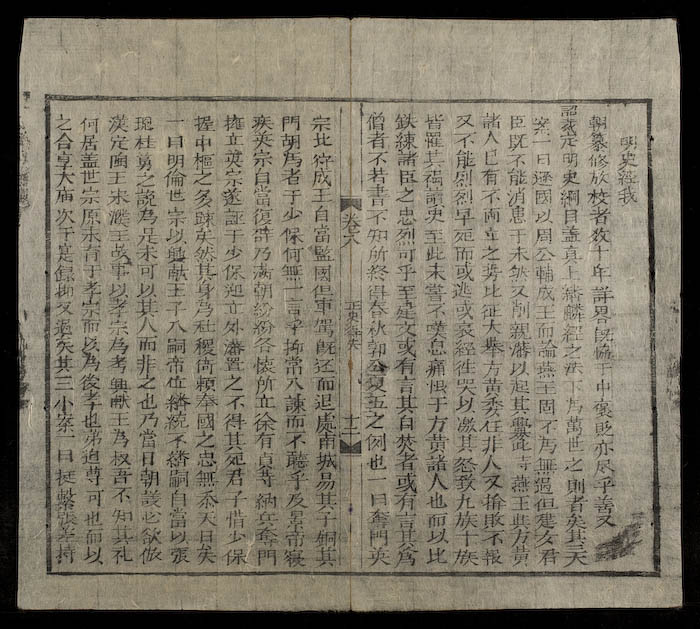 明史經我
朝纂修放校者數十年詳畧旣備于中褒貶亦尽乎善又
詔裁定明史綱目葢直上繙麟經之法下爲萬世之則者矣其三大
案一曰遜國以周公輔成王而論燕王固不爲無過但建文君
臣旣不能消患于未然又削親藩以起其釁此時燕王與方黄
諸人已有不兩立之勢比征大舉方黄委任非人又掩敗不報
又不能烈烈早死而或逃或衰絰徃哭以激其怒致九族十族
皆罹其禍讀史至此未嘗不嘆息痛恨于方黄諸人也而以比
鉄練諸臣之忠烈可乎至建文或有言其自焚者或有言其爲
僧者不若書不知所終得春秋郭公夏五之例也一曰奪門英
卷六
正史
十二
宗北狩成王自當監國但車駕旣还而迟處南城易其子錮其
門胡爲者于少保何無一言乎抑常入諫而不聽乎及景帝寢
疾英宗自當復辟乃滿朝紛紛各懷所立徐有貞等納兵奪門
擁立英宗遂誣于少保迎立外藩置之不得其死君子惜少保
握中樞之多踈英然其身爲社稷倚頼奉國之忠無忝天日矣
一曰明倫世宗以興献王子入嗣帝位繼統不繼嗣自當以張
璁桂萼之說爲是未可以其人而非之也乃當日朝議必欲依
漢定陶王宋濮王故事以孝宗爲考興献王爲叔吾不知其礼
何居葢世宗原未育于孝宗而以爲後孝也弟追尊可也而以
之合享大庙次于寔錄抑又過矣其三小案一曰挺擊張差持